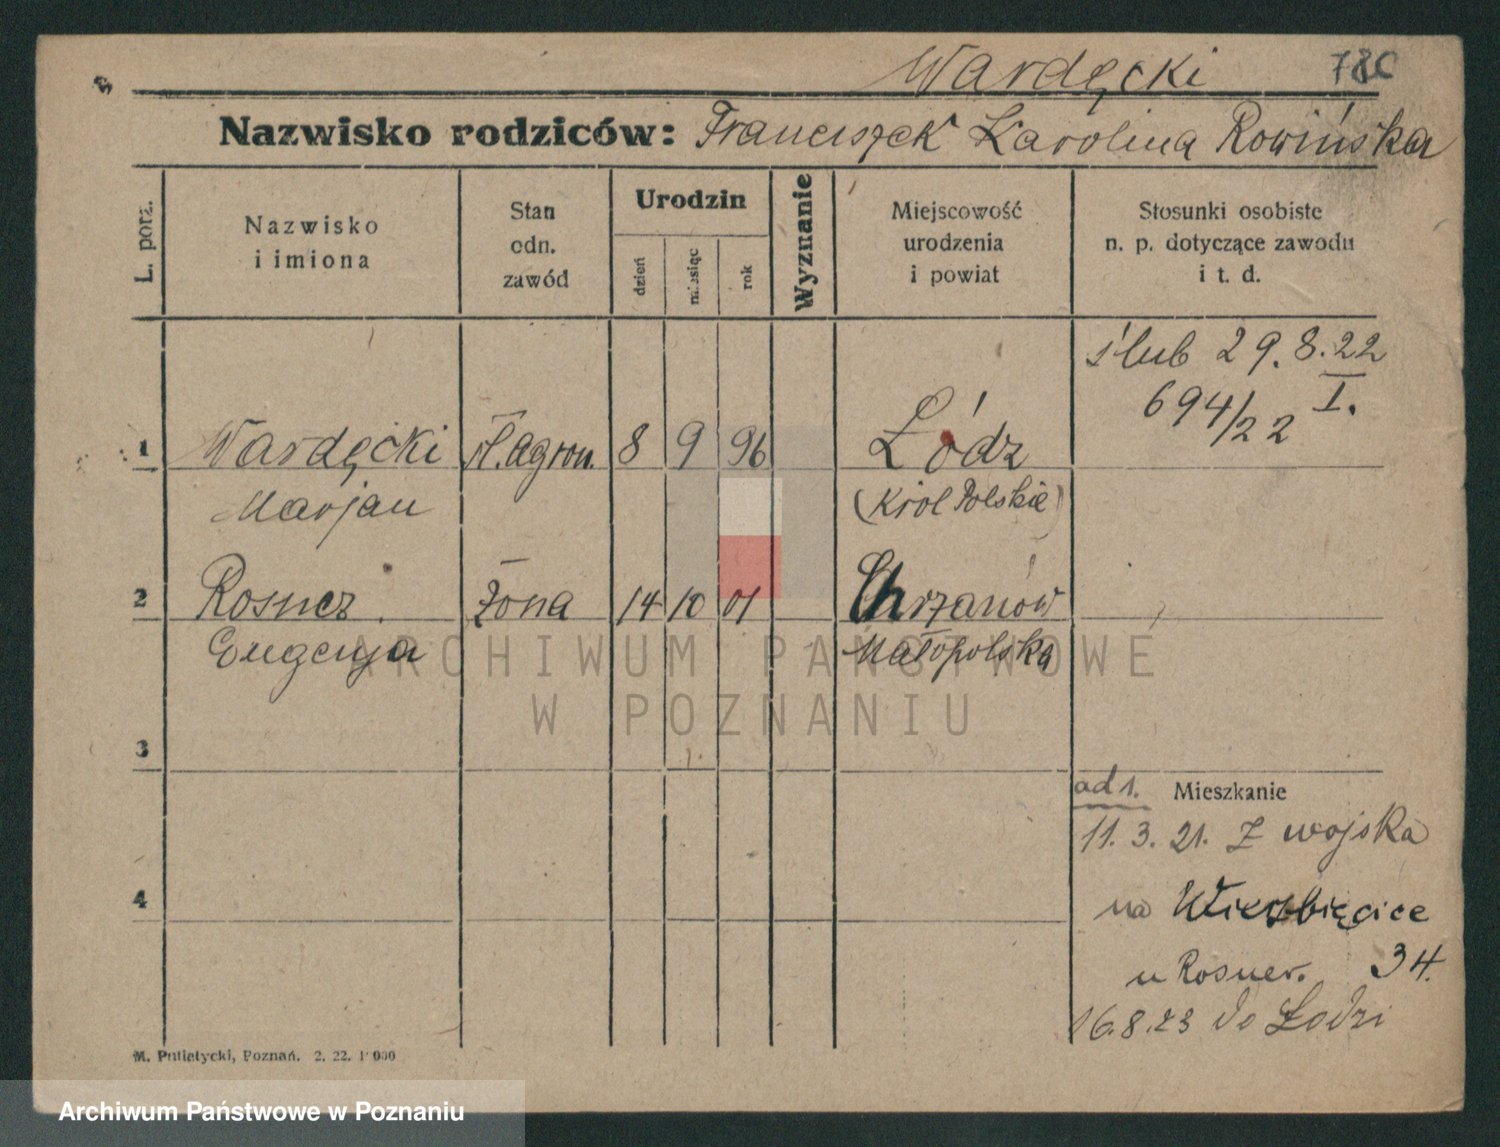 Wardęcki 780
Nazwisko rodziców: Franciszek Karolina Rowińska
L. porz.
Nazwisko
i imiona
Stan
odn.
zawód
Urodzin
dzień
miesiąc
rok
Wyznanie
Miejscowość
urodzenia
i powiat
Stosunki osobiste
n. p. dotyczące zawodu
i t. d.
ślub 29.8.22
694/22 I.
1 Wardęcki agron. 8 9 96 Łódz
Marjan (Król Polskie)
2 Rosner żona 14 10 01 Chrzanów
Eugenja Małopolska
ARCHIWUM PAŃSTWOWE
W POZNANIU
3
ad 1. Mieszkanie
11. 3. 21. z wojska
4
na Wierzbięcice
u Rosner. 34.
16.8.23 do Łodzi
M. Putiatycki, Poznań. 2. 22. 1000
Archiwum Państwowe w Poznaniu